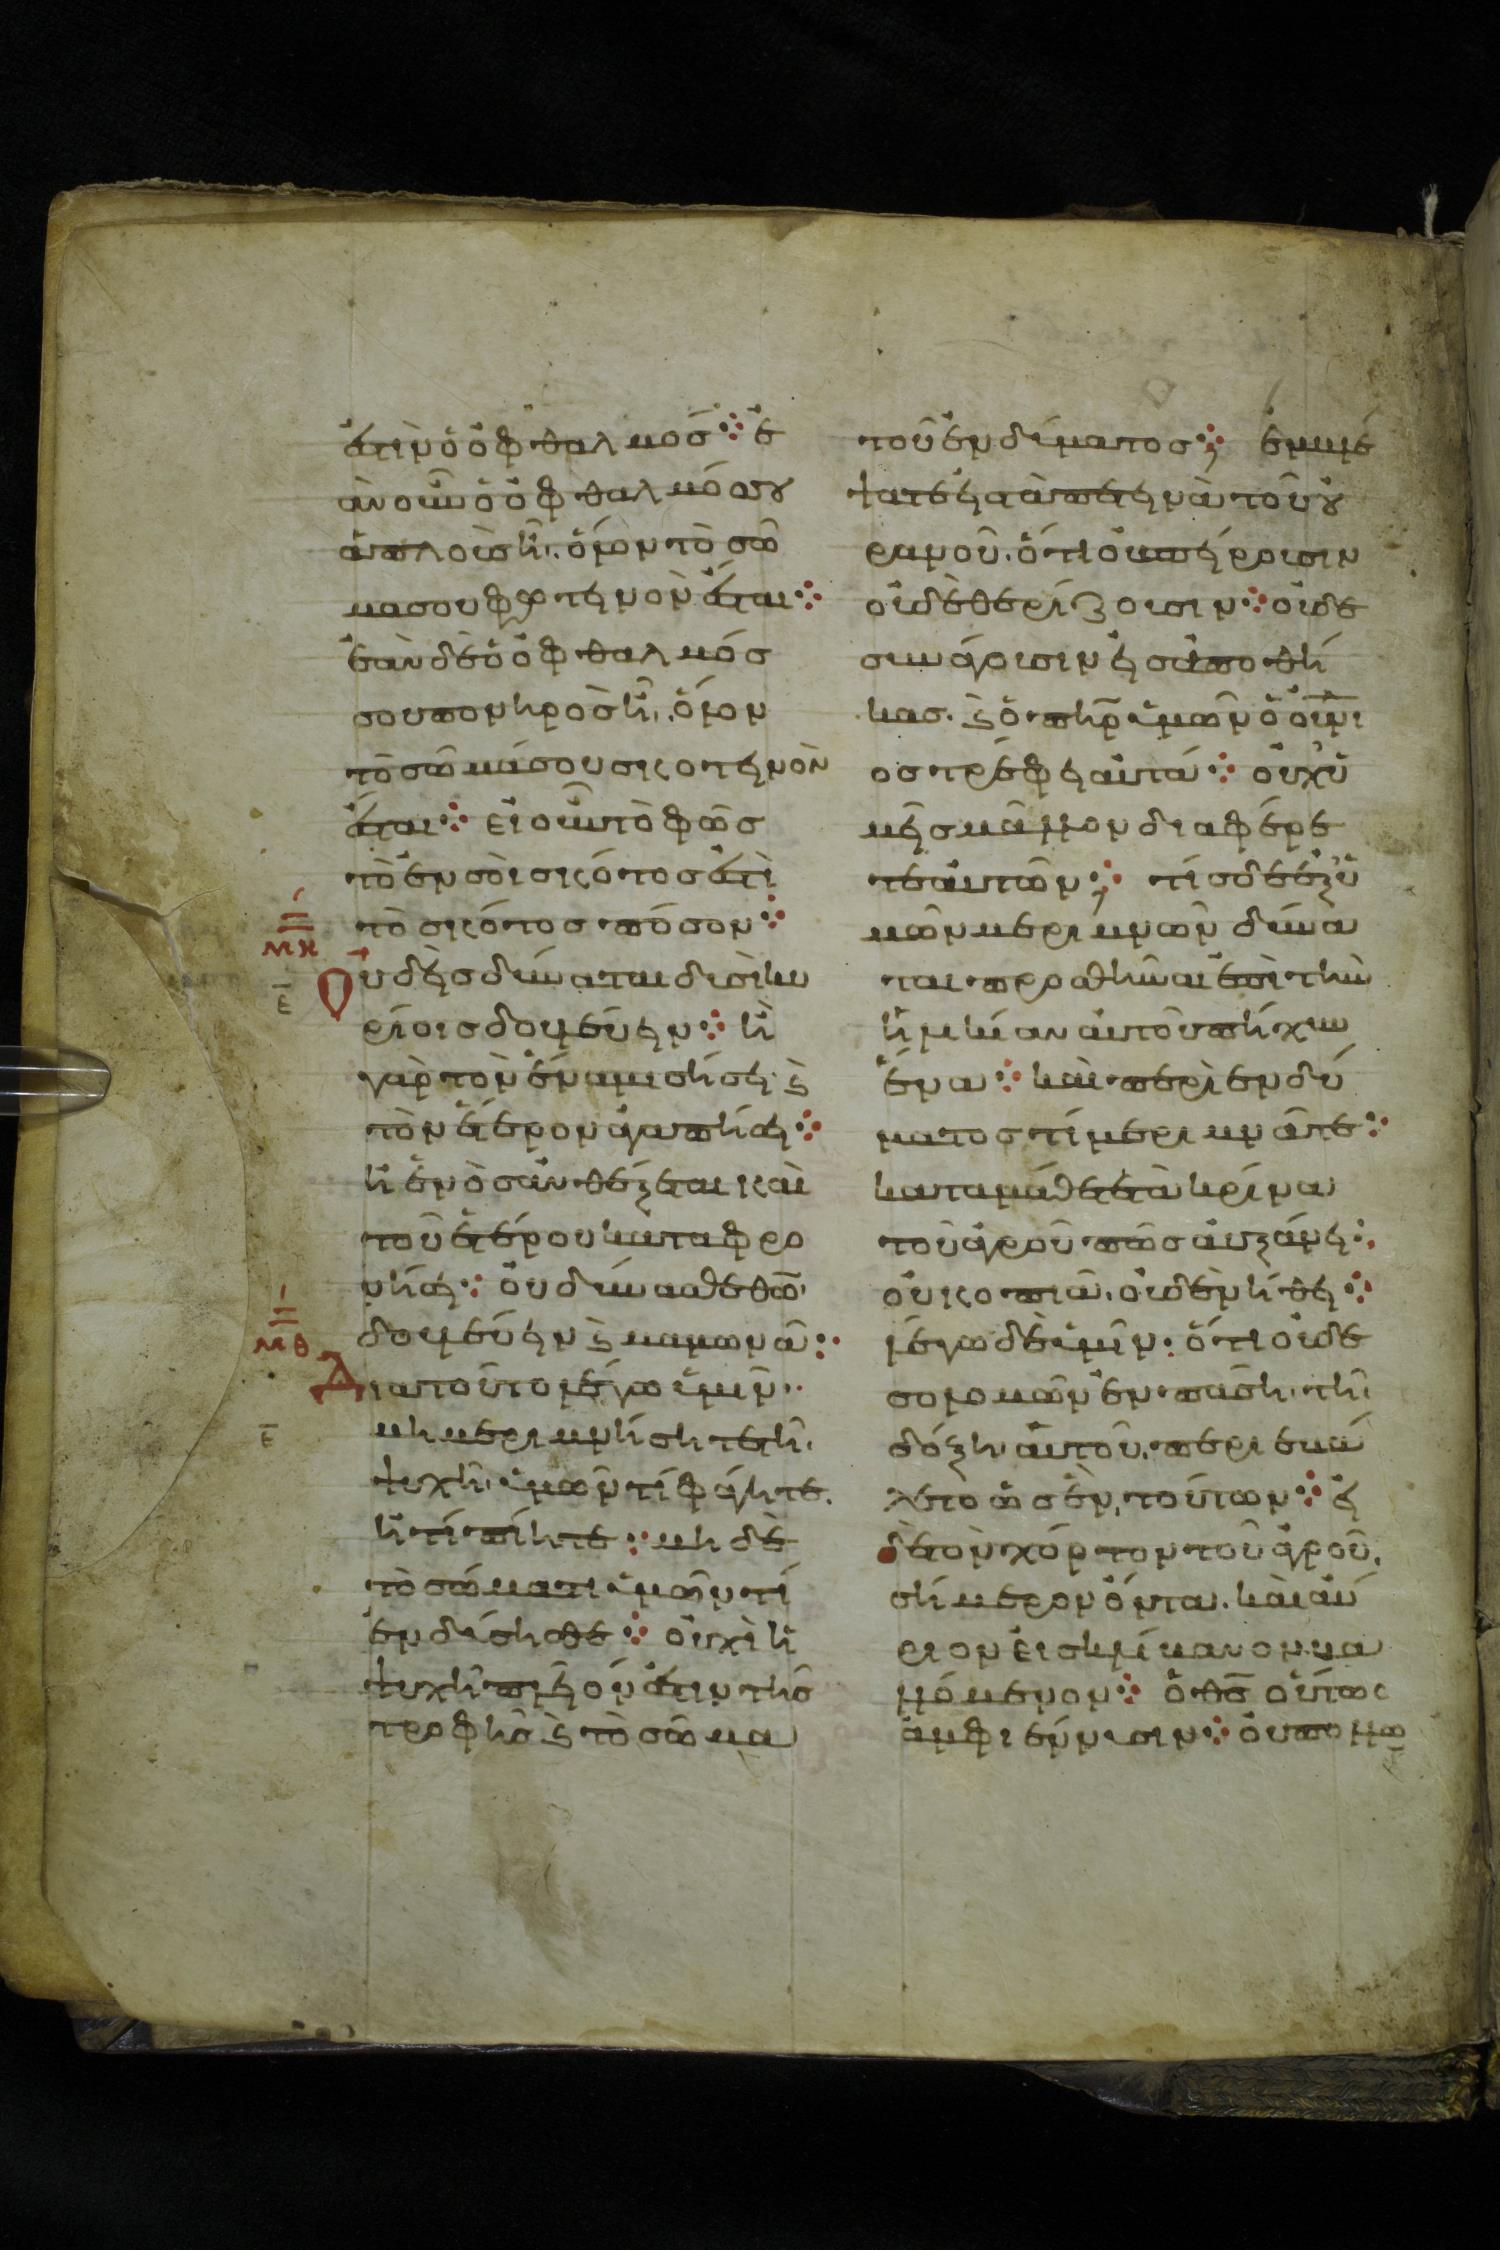 ἐστιν ὁ ὀφθαλμός⁘ ἐ
ὰν οὖν ὁ ὀφθαλμός σου
ἁπλοῦς ἦ, ὅλον τὸ σῶ
μα σου φωτεινὸν ἔσται⁘
ἐὰν δὲ ὁ ὀφθαλμός
σου πονηρὸς ἦ, ὅλον
τὸ σῶμά σου σκοτεινὸν
ἔσται⁘ εἰ οὖν τὸ φῶς
τὸ ἐν σοὶ σκότος ἐστὶ
τὸ σκότος πόσον⁘
μη
ε
Οὐδεὶς δύναται δυσὶ κυ
ρίοις δουλεύειν⁘ ἢ
γὰρ τὸν ἕνα μισήσει ϗ
τὸν ἕτερον ἀγαπήσει⁘
ἢ ἑνὸς ἀνθέξεται καὶ
τοῦ ἑτέρου καταφρο
νήσει⁘ οὐ δύνασθε θω
δουλεύειν ϗ μαμωνᾶ⁘
μθ
ε
Διατοῦτο λέγω ὑμῖν·
μὴ μεριμνήσητε τῆ
ψυχῆ ὑμῶν τί φάγητε.
ἢ τί πίητε⁘ μηδὲ
τὸ σώματι ὑμῶν τί
ἐνδύσησθε⁘ οὐχὶ ἡ
ψυχὴ πλεῖόν ἐστιν τῆς
τροφῆς ϗ τὸ σῶμα
τοῦ ἐνδύματος⁘; ἐμβλέ
ψατε εἰς τὰ πετεινὰ τοῦ οὐ
ρανοῦ. ὅτι οὐ σπείρουσιν
οὐδὲ θερίζουσιν⁘ οὐδὲ
συνάγουσιν εἰς ἀποθή
κας. ϗ ὁ πηρ ὑμῶν ὁ οὐνι
ος τρέφει αὐτά⁘ οὐχ ὑ
μεῖς μᾶλλον διαφέρε
τε αὐτῶν⁘; τίς δὲ ἐξ ὑ
μῶν μεριμνῶν δύνα
ται προσθῆναι ἐπὶ τὴν
ἡλικίαν αὐτοῦ πήχυν
ἕνα⁘ καὶ περὶ ἐνδύ
ματος τί μεριμνᾶτε⁘
καταμάθετε τὰ κρίνα
τοῦ ἀγροῦ πῶς αὐξάνει⁘
οὐ κοπιᾶ. οὐδὲ νήθει⁘
λέγω δὲ ὑμῖν. ὅτι οὐδὲ
σολομῶν ἐν πάση τῆ
δόξη αὐτοῦ. περιεβά
λετο ὡς ἓν τούτων⁘ εἰ
δὲ τὸν χόρτον τοῦ ἀγροῦ,
σήμερον ὄντα. καὶ αὔ
ριον εἰς κλίβανον βα
λλόμενον⁘ ὁ θς οὕτως
ἀμφιέννυσιν⁘ οὐ πολλῶ